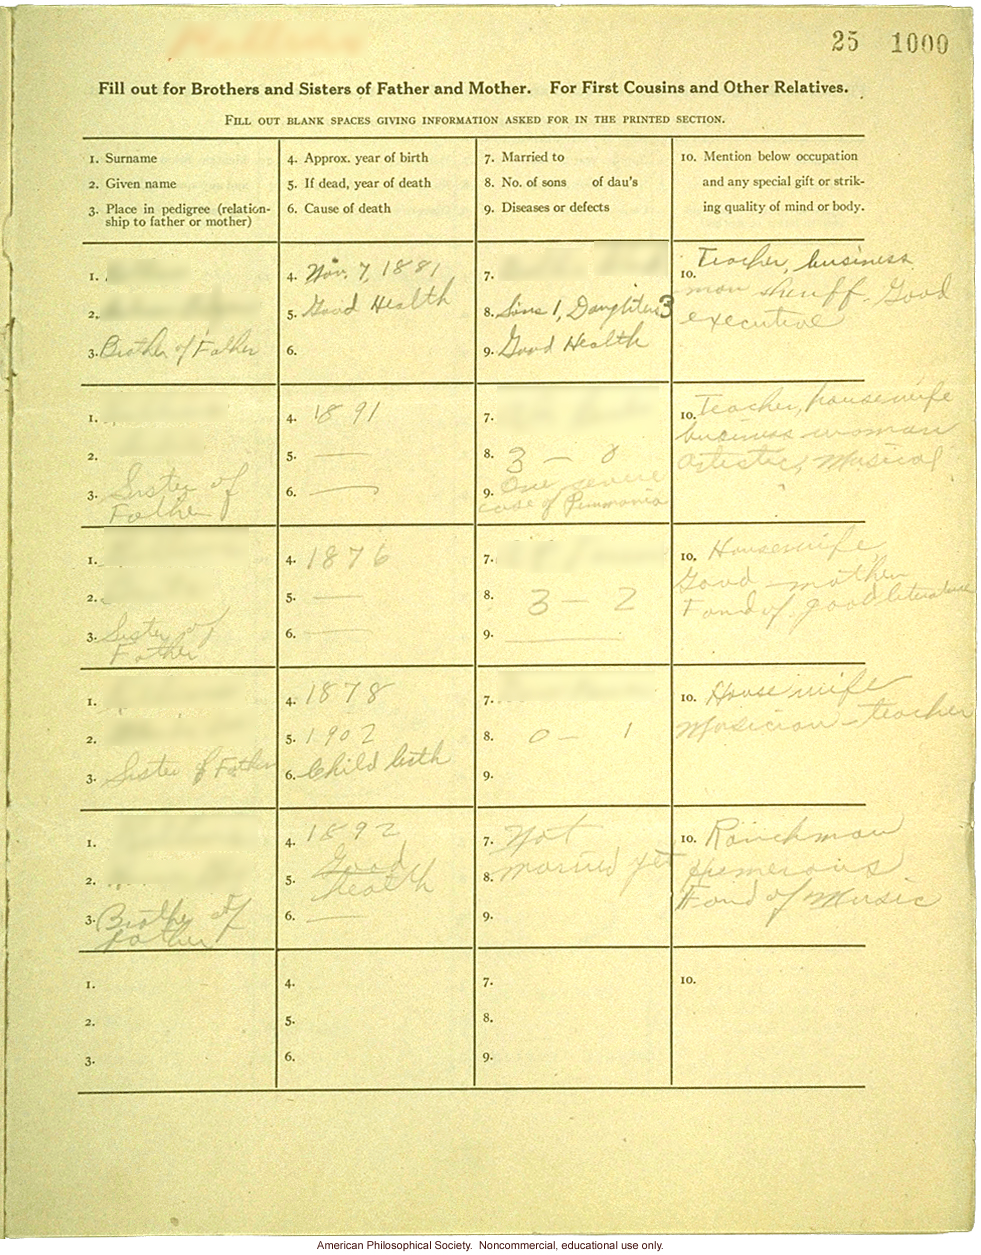 25 1000
Fill out for Brothers and Sisters of Father and Mother. For First Cousins and Other Relatives.
FILL OUT BLANK SPACES GIVING INFORMATION ASKED FOR IN THE PRINTED SECTION.
1. Surname
2. Given name
3. Place in pedigree (relation-
ship to father or mother)
4. Approx. year of birth
5. If dead, year of death
6. Cause of death
7. Married to
8. No. of sons of dau's
9. Diseases or defects
10. Mention below occupation
and any special gift or strik-
ing quality of mind or body.
1.
2.
3. Brother of Father
4. Nov. 7, 1881
5. Good Health
6.
7.
8. Sons 1, Daughters 3
9. Good Health
10. Teacher, business
man sheriff. Good
executive
1.
2.
3. Sister of
Father
4. 1891
5. —
6. —
7.
8. 3 — 0
9. One severe
case of Pnumonia
10. Teacher, housewife
business woman
Artistic, Musical
1.
2.
3. Sister of
Father
4. 1876
5. —
6. —
7.
8. 3 — 2
9. —
10. Housewife
Good mother
Fond of good literature
1.
2.
3. Sister of Father
4. 1878
5. 1902
6. Child birth
7.
8. 0 — 1
9.
10. House wife
Musician - teacher
1.
2.
3. Brother of
Father
4. 1892
5. Good
health
6. —
7. Not
8. married yet
9.
10. Ranchman
Humerous
Fond of Music
1.
2.
3.
4.
5.
6.
7.
8.
9.
10.
American Philosophical Society. Noncommercial, educational use only.